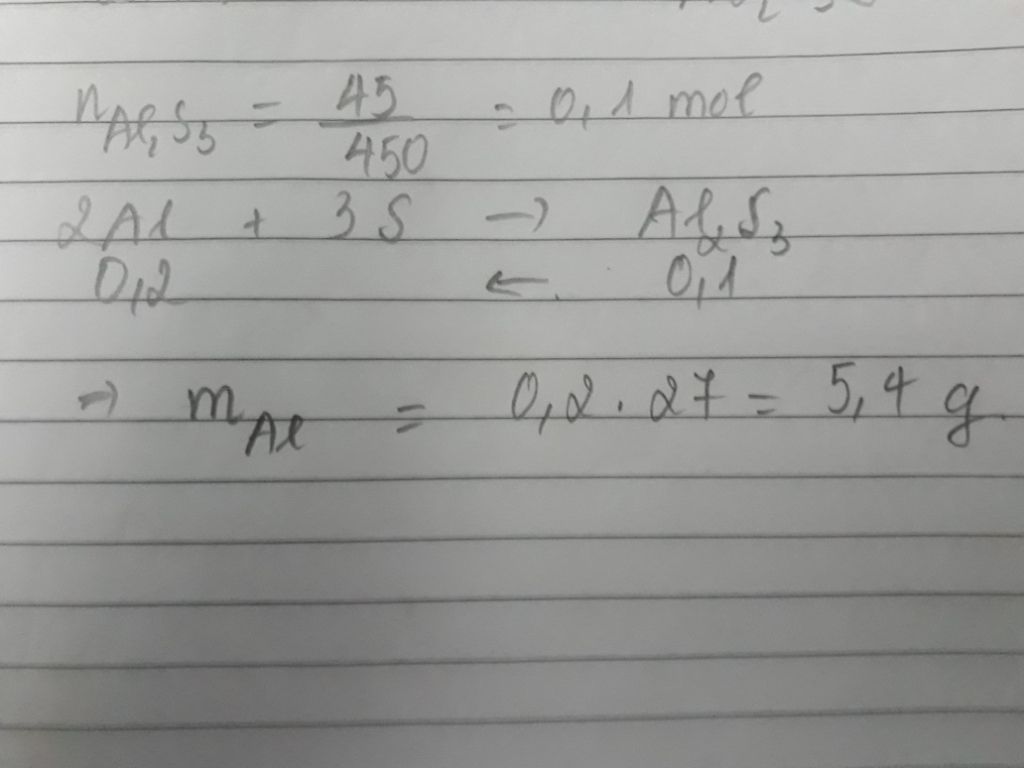 n Al2S3 = 45/450 = 0,1 mol
2Al + 3S → Al2S3
0,2 ← 0,1
⇒ m Al = 0,2 . 27 = 5,4 g.